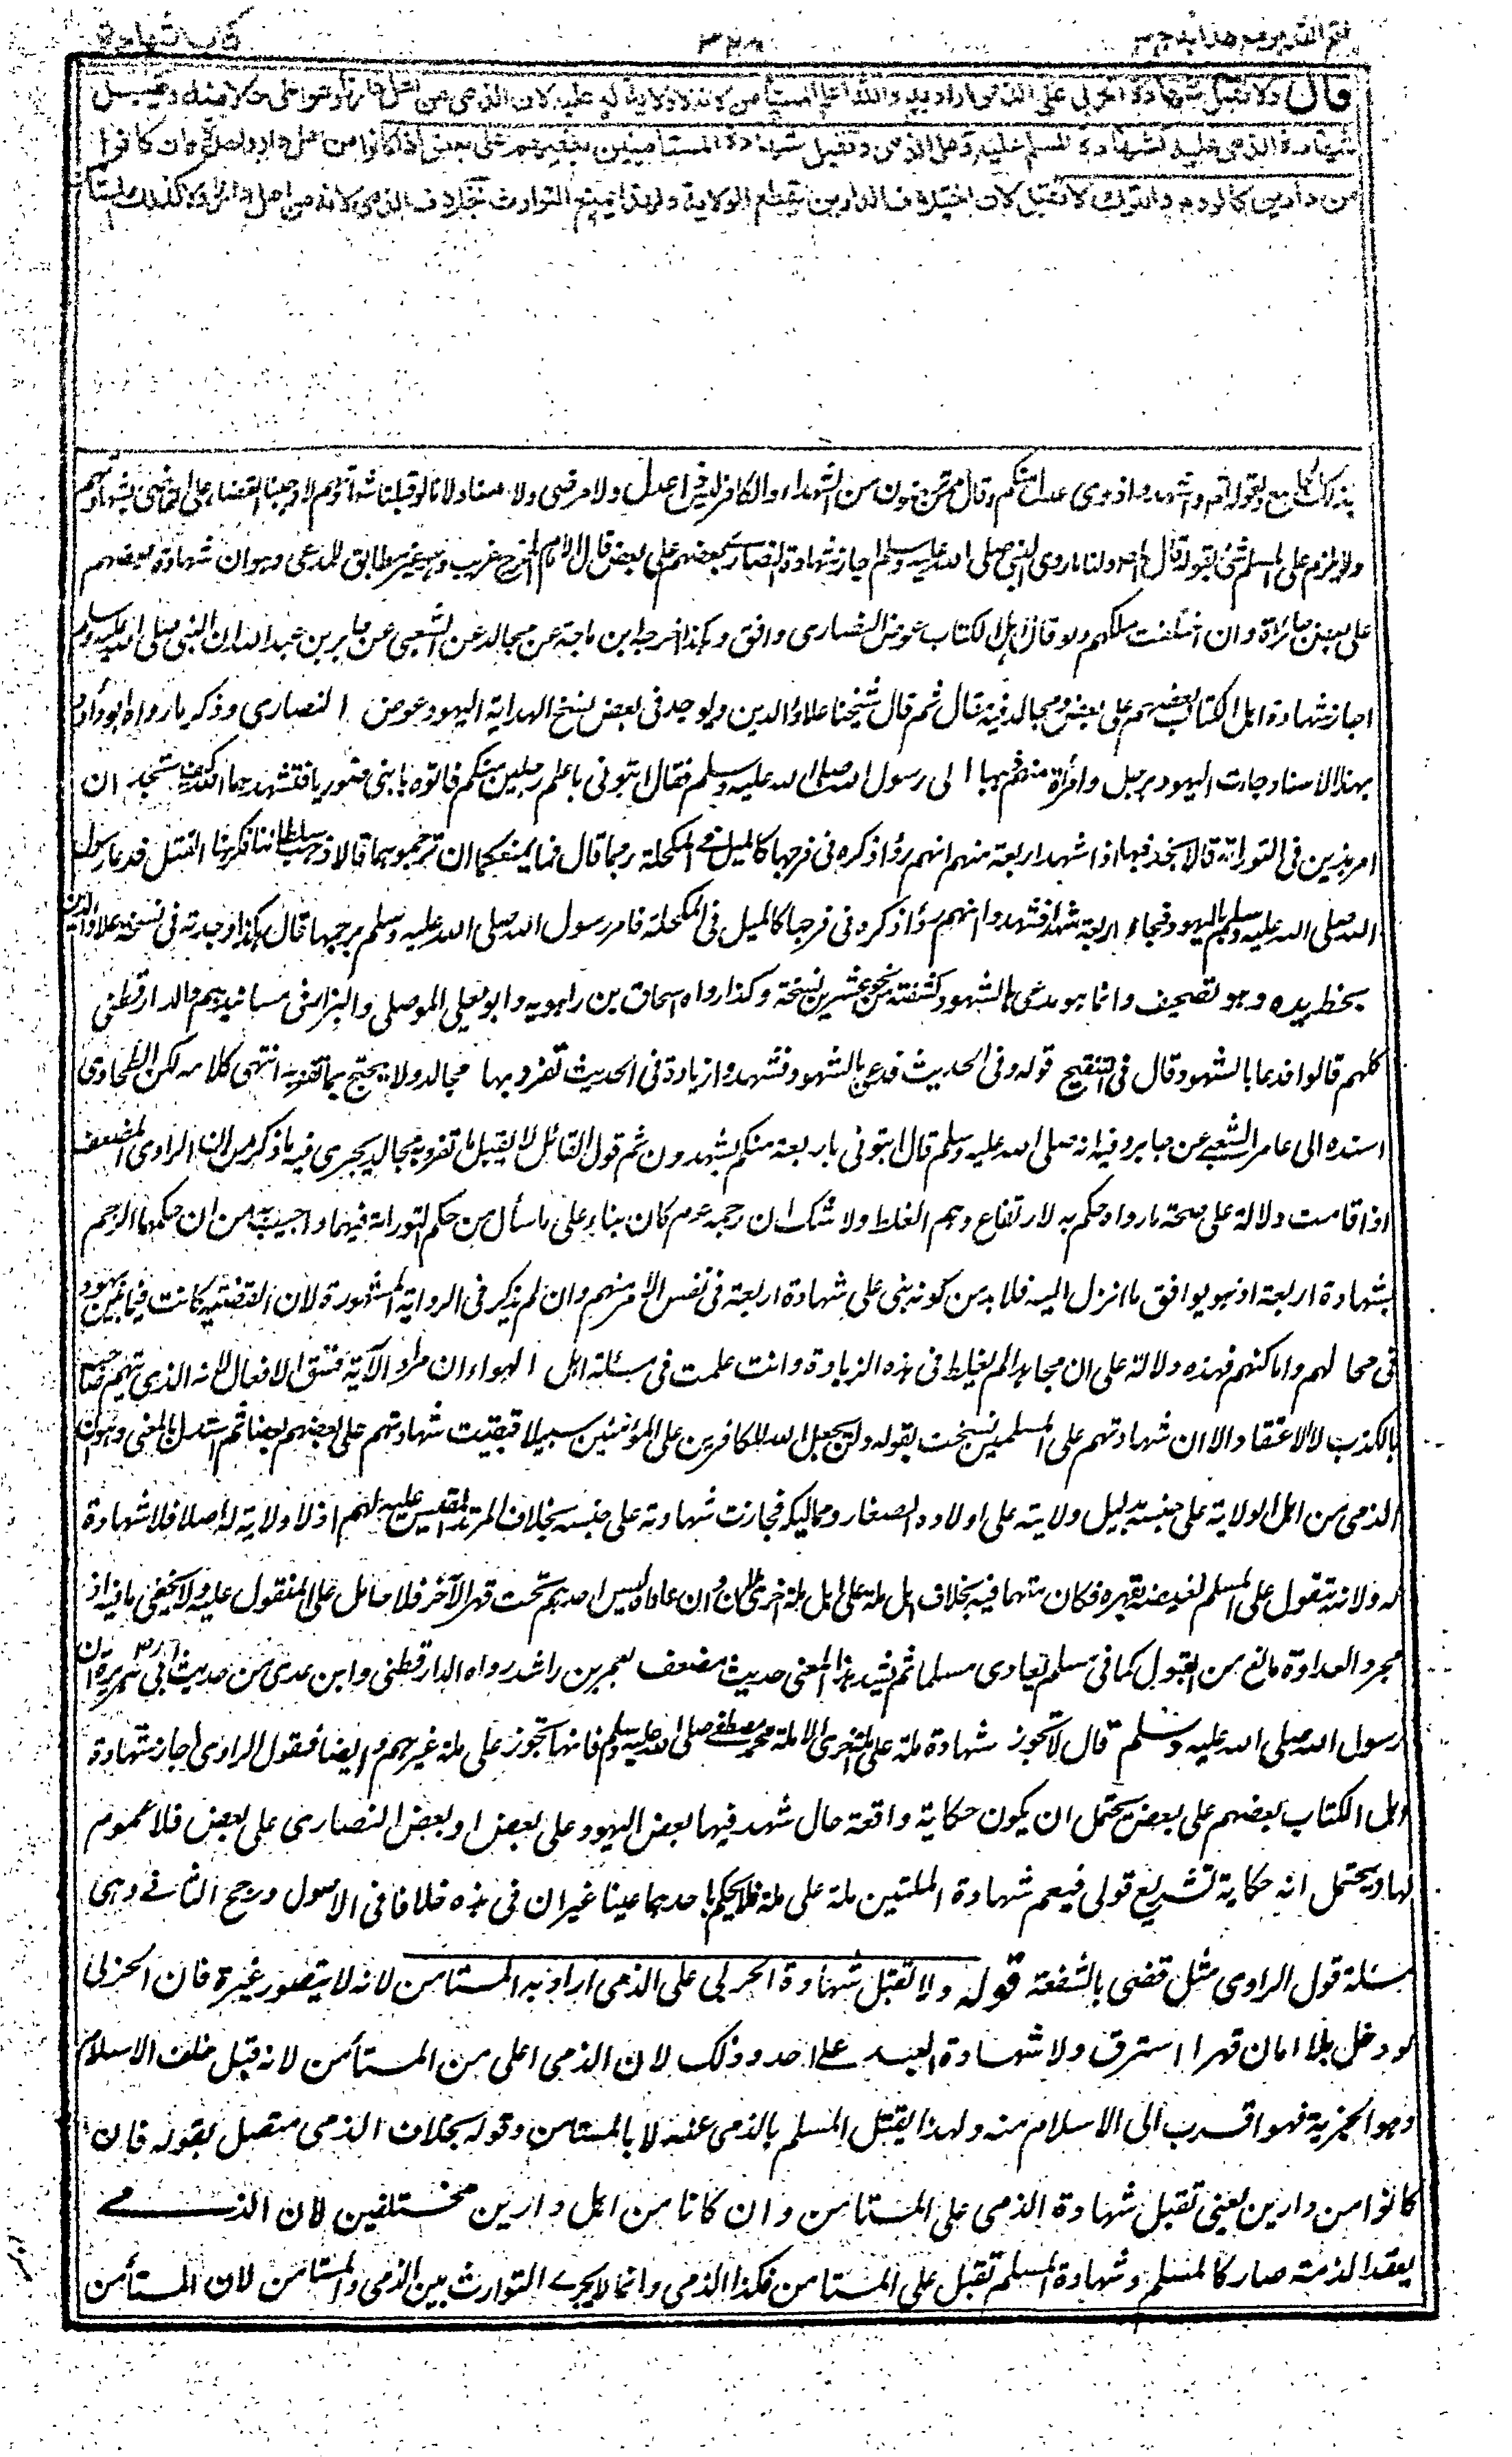 فتح القدير مع هداية ج ٣
كتاب شهادة
قال ولا تقبل شهادة الحربي على الذمي اراد به والله اعلم المستأمن لانه لا ولاية له عليه لان الذمي من اهل دارنا وهو اعلى حالا منه وتقبل
شهادة الذمي عليه كشهادة المسلم عليه وعلى الذمي وتقبل شهادة المستأمنين بعضهم على بعض اذا كانوا من اهل دار واحدة فان كانوا
من دارين كالروم والترك لا تقبل لان اختلاف الدارين يقطع الولاية ولهذا يمنع التوارث بخلاف الذمي لانه من اهل دارنا ولا كذلك المستأ
بقوله تع واشهدوا ذوى عدل منكم وقال ممن ترضون من الشهداء والكافر ليس بذى عدل ولا مرضى ولا منا ولانا لو قبلنا شهادتهم لاوجبنا القضاء على القاضى بشهادتهم
ولا يلزم على المسلم شئ بقوله قال المص ولنا ما روى ان النبى صلى الله عليه وسلم اجاز شهادة النصارى بعضهم على بعض قال الامام المخرج غريب وهو غير مطابق للمدعى وهو ان شهادة بعضهم
على بعض جائزة وان اختلفت مللهم ولو قال اهل الكتاب عوض النصارى وافق وهكذا اخرجه ابن ماجة عن مجالد عن الشعبى عن جابر بن عبد الله ان النبى صلى الله عليه وسلم
اجاز شهادة اهل الكتاب بعضهم على بعض ومجالد فيه مقال ثم قال شيخنا علاؤ الدين ويوجد فى بعض نسخ الهداية اليهود عوض النصارى وذكر ما رواه ابو داؤد
بهذا الاسناد جاءت اليهود برجل وامرأة منهم زنيا الى رسول الله صلى الله عليه وسلم فقال ايتونى باعلم رجلين منكم فاتوه بابنى صوريا فنشدهما الله كيف تجدان
امر هذين فى التوراة قالا نجد فيها اذا شهد اربعة منهم انهم رؤا ذكره فى فرجها كالميل فى المكحلة رجما قال فما يمنعكما ان ترجموهما قالا ذهب سلطاننا فكرهنا القتل فدعا رسول
الله صلى الله عليه وسلم باليهود فجاء اربعة شهداء فشهدوا انهم رؤا ذكره فى فرجها كالميل فى المكحلة فامر رسول الله صلى الله عليه وسلم برجمها قال هكذا وجدته فى نسخة علاؤ الدين
بخط يده وهو تصحيف وانما هو فدعى بالشهود كشفته من نحو عشرين نسخة وكذا رواه اسحاق بن راهويه وابو يعلى الموصلى والبزار فى مسانيدهم والدارقطنى
كلهم قالوا فدعا بالشهود قال فى التنقيح قوله وفى الحديث فدعى بالشهود فشهدوا زيادة فى الحديث تفرد بها مجالد ولا يحتج بما تفرد به انتهى كلامه لكن الطحاوى
اسنده الى عامر الشعبى عن جابر وفيه انه صلى الله عليه وسلم قال ايتونى باربعة منكم يشهدون ثم قول القائل لا يقبل ما تفرد به مجالد يجرى فيه ما ذكر من ان الراوى المضعف
اذا قامت دلالة على صحة ما رواه حكم به لارتفاع وهم الغلط ولا شك ان رجمه عم كان بناء على ما سأل من حكم التوراة فيهما واجيب به من ان حكمها الرجم
بشهادة اربعة اذ هو يوافق ما انزل اليه فلا بد من كونه بنى على شهادة اربعة فى نفس الامر منهم وان لم يذكر فى الرواية المشهورة لان القضية كانت فيما بين يهود
فى محالهم واماكنهم فهذه دلالة على ان مجالدا لم يغلط فى هذه الزيادة وانت علمت فى مسئلة اهل الهواء ان مراد الآية فسق الافعال لانه الذى يتهم صاحبه
بالكذب لا الاعتقاد الا ان شهادتهم على المسلمين نسخت بقوله ولن يجعل الله للكافرين على المؤمنين سبيلا فبقيت شهادتهم على بعضهم بعضا ثم استدل بالمعنى وهو ان
الذمى من اهل الولاية على جنسه بدليل ولايته على اولاده الصغار ومماليكه فجازت شهادته على جنسه بخلاف المرتد المقيس عليه لهم اذ لا ولاية له اصلا فلا شهادة
له ولانه يتقول على المسلم لغيظه بقهره فكان متهما فيه بخلاف اهل ملة على اهل ملة اخرى لان وان عاداه ليس احدهم تحت قهر الآخر فلا حامل على المنقول عليه ولا يخفى ما فيه اذ
مجرد العداوة مانع من القبول كما فى مسلم يعادى مسلما ثم يفيد هذا المعنى حديث مضعف بعمر بن راشد رواه الدارقطنى وابن عدى من حديث ابى هريرة ان
رسول الله صلى الله عليه وسلم قال لا تجوز شهادة ملة على ملة اخرى الا ملة محمد مصطفى صلى الله عليه وسلم فانها تجوز على ملة غيرهم وايضا فقول الراوى اجاز شهادة
اهل الكتاب بعضهم على بعض يحتمل ان يكون حكاية واقعة حال شهد فيها بعض اليهود على بعض او بعض النصارى على بعض فلا عموم
لها ويحتمل انه حكاية تشريع قولى فيعم شهادة الملتين ملة على ملة فلا يحكم باحدهما عينا غير ان فى هذه خلافا فى الاصول ورجح الثانى وهى
مسئلة قول الراوى مثل قضى بالشفعة قوله ولا تقبل شهادة الحربى على الذمى اراد به المستامن لانه لا يتصور غيره فان الحربى
لو دخل بلا امان قهرا استرق ولا شهادة العبد على احد وذلك لان الذمى اعلى من المستأمن لانه قبل خلف الاسلام
وهو الجزية فهو اقرب الى الاسلام منه ولهذا يقتل المسلم بالذمى عندنا لا بالمستامن وقوله بخلاف الذمى متصل بقوله فان
كانوا من دارين يعنى تقبل شهادة الذمى على المستامن وان كانا من اهل دارين مختلفين لان الذمى
بعقد الذمة صار كالمسلم وشهادة المسلم تقبل على المستامن فكذا الذمى وانما لا يجرى التوارث بين الذمى والمستامن لان المستأمن